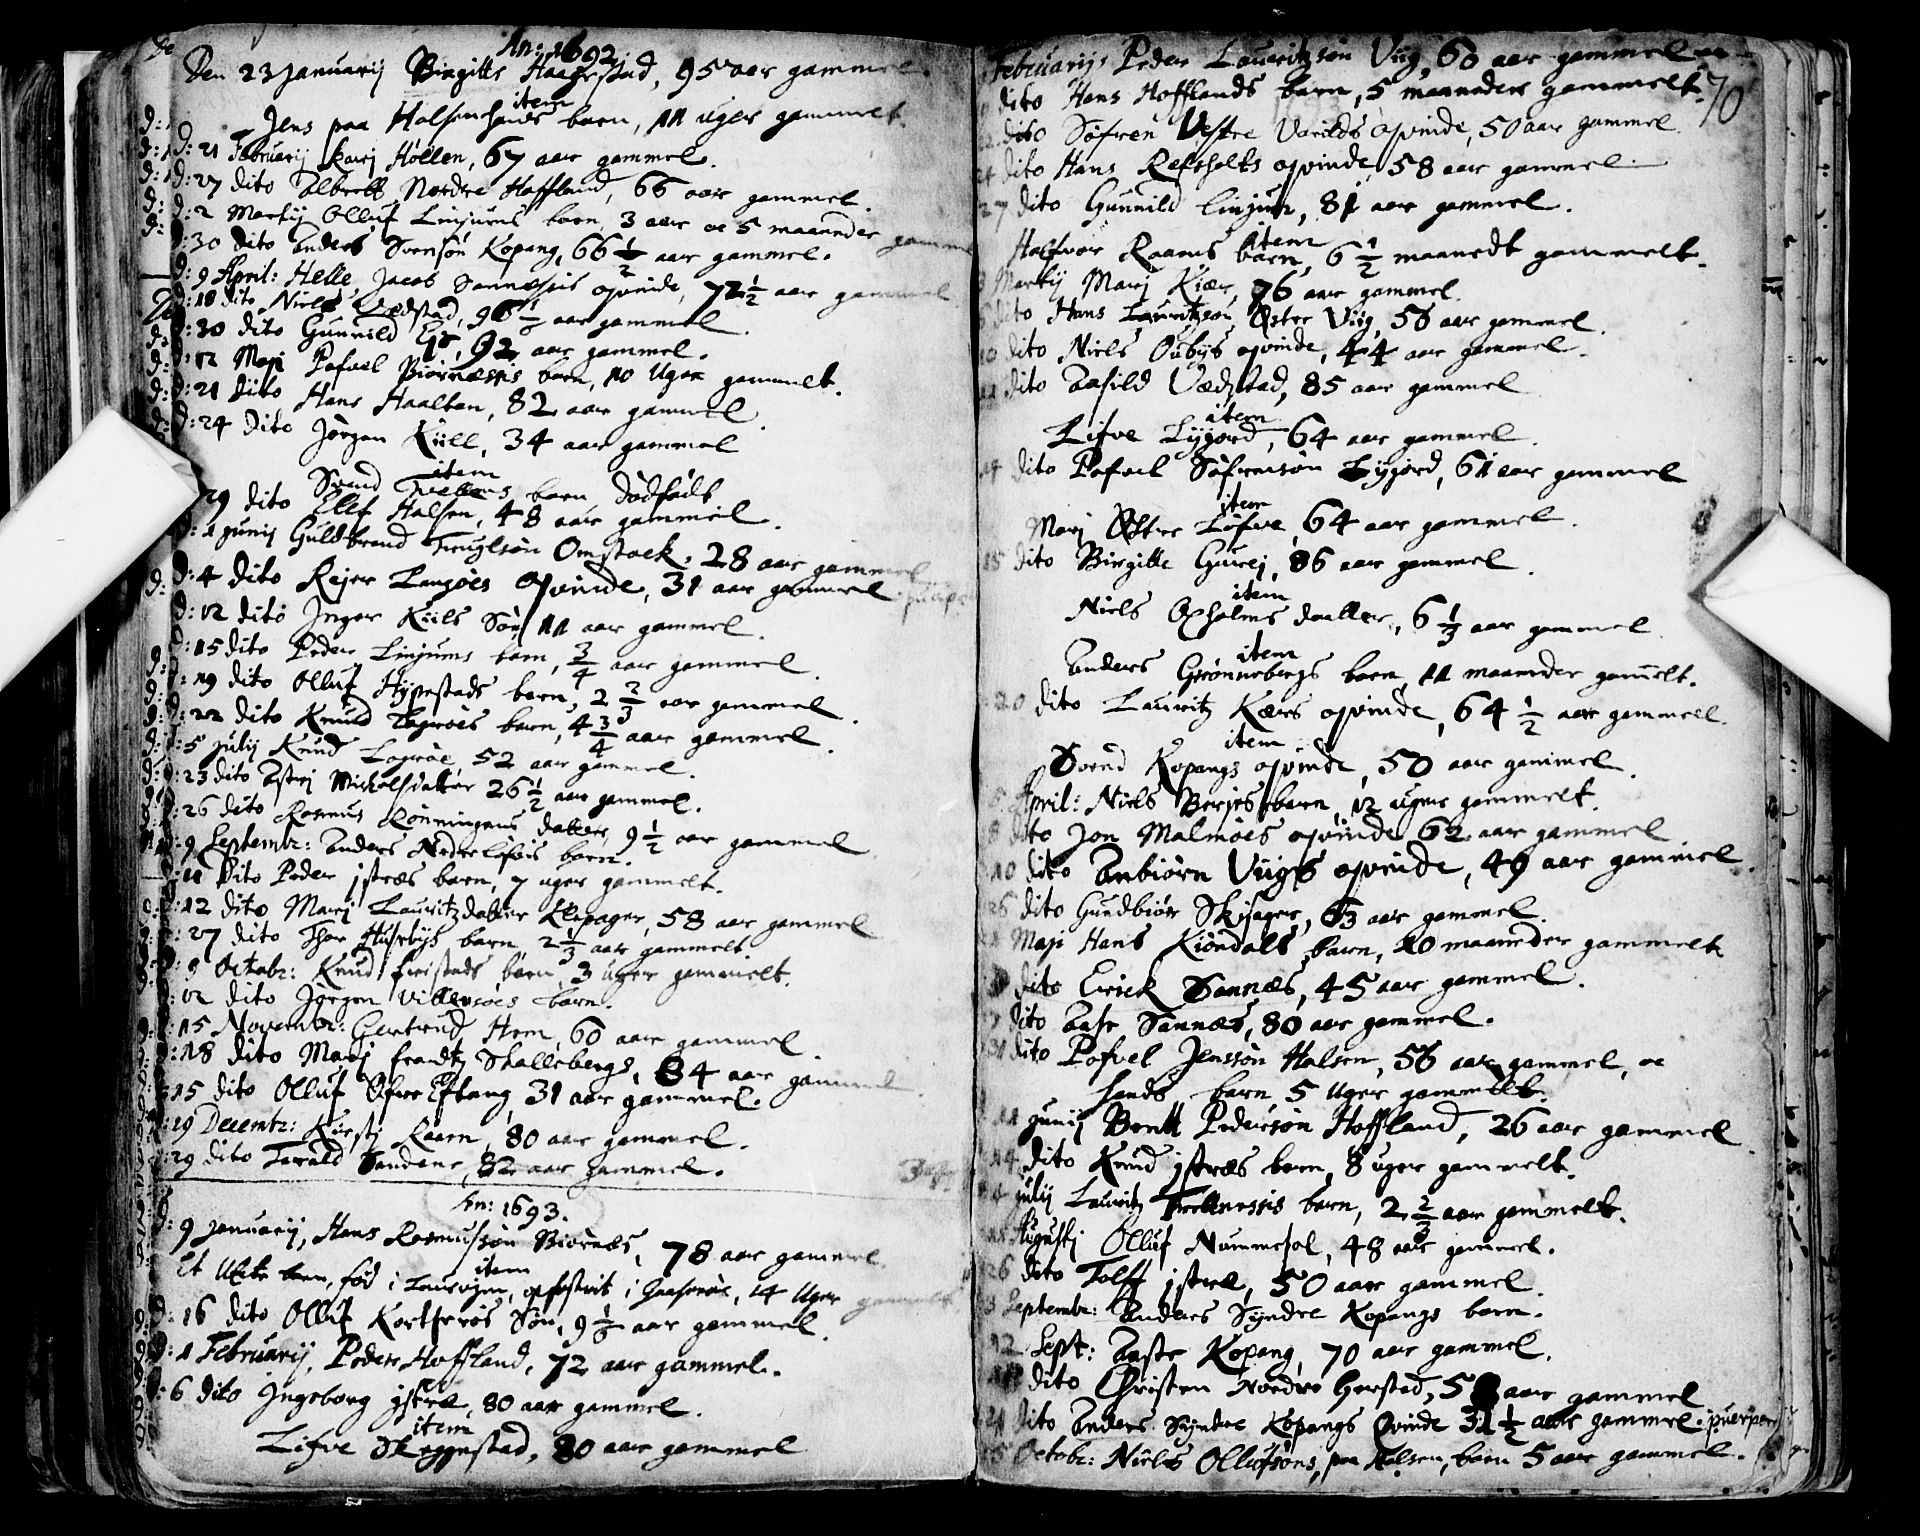 An: 1692.
Den 23 Januarij Birgitte Haagestad, 95 aar gammel.
item
Jens paa Halsen hans barn, 11 uger gammelt.
D: 21 Februarij Karj Hollen, 67 aar gammel.
D: 27 dito Albrett Nordre Hoffland, 66 aar gammel.
D: 2 Martij Olluf Linjums barn 3 aar oc 5 maaneder gammel
D: 30 dito Anders Svensøn Kopang, 66 1/2 aar gammel.
D: 9 April: Helle, Jacob Sannessis qvinde, 72 1/2 aar gammel
D: 18 dito Niels Vedstad, 96 aar gammel
D: 30 dito Gunnild 92 aar gammel.
D: 12 Maji Pofvel Biørnessis barn, 10 Uger gammelt.
D: 21 dito Hans Haaltan, 82 aar gammel.
D: 24 dito Jørgen Kiill, 34 aar gammel
item
Svend Trellens barn dødfødt
29 dito Ellef Halsen, 48 aar gammel.
D: 1 Junij Guldbrand Truylsøn Omstock, 28 aar gammel
D: 4 dito Rejer Langøes Qvinde, 31 aar gammel
D: 12 dito Inger Kiils Søn 11 aar gammel.
D: 15 dito Peder Linjums barn, 3/4 aar gammel.
D: 19 dito Olluf Hysestads barn, 2 2/3 aar gammel.
D: 22 dito Knud Agerøes barn, 4 3/4 aar gammel
D: 5 Julij Knud Lagerøe, 52 aar gammel.
D: 23 dito Astrj Michelsdatter 26 1/2 aar gammel.
D: 26 dito Rasmus Rønningens datter, 9 1/2 aar gammel
D: 9 Septembr: Anders Nedre Løfvis barn.
D: 11 Dito Peder Istres barn, 7 uger gammelt.
D: 12 dito Marj Lauritzdatter Klepager, 58 aar gammel
D: 27 dito Thor Husebys barn 2 1/3 aar gammelt.
D: 9 Octobr: Knud Freistads barn 3 uger gammelt.
D: 12 dito Jørgen Villersøes barn.
D: 15 Novembr: Giertrud Hem, 60 aar gammel
D: 18 dito Marj Frandtz Skallebergs, 64 aar gammel
D: 15 dito Olluf Øfre Eftang 31 aar gammel.
D: 19 Decembr: Kirstj Raaen, 80 aar gammel.
D: 29 dito Tarald Sandene, 82 aar gammel.
An: 1693.
D: 9 Januarij, Hans Rasmussøn Biørnes, 78 aar gammel.
item
Et Uekte barn, fød i Laurvigen, opfostrit i Haaserøe, 14 Uger gammelt
D: 16 dito Olluf Kortserøs Søn, 9 aar gammel.
D: 1 Februarij, Peder Hoffland, 72 aar gammel.
D: 6 dito Ingeborg Istre, 80 aar gammel.
item
Lifve Skeggestad, 80 aar gammel
70
Februarij Peder Lauritzsøn Viig, 60 aar gammel
dito Hans Hofflands barn, 5 maaneder gammelt.
dito Søfren Vestre Varilds qvinde, 50 aar gammel.
24 dito Hans Refsholts qvinde, 58 aar gammel
27 dito Gunnild Linjum, 81 aar gammel.
item
Halfvor Raaens barn 6 1/2 maanedt gammelt.
Martij Marj Kier, 76 aar gammel.
dito Hans Lauritzsøn Østre Viig, 56 aar gammel
10 dito Niels Oubys qvinde, 44 aar gammel.
11 dito Aasild Vedstad, 85 aar gammel
item
Lifve Lygord, 64 aar gammel
14 dito Pofvel Søfrensøn Lygord, 61 aar gammel
item
Marj Østre Løfve, 64 aar gammel.
15 dito Birgitte Gurej, 86 aar gammel
item
Niels Oxholms daatter, 6 1/3 aar gammel.
item
Anders Grønnebergs barn 11 maaneder gamelt.
20 dito Lauritz Kiærs qvinde, 64 1/2 aar gammell.
item
Svend Kopangs qvinde, 50 aar gammel
April: Niels Berjes barn 12 uger gammelt.
dito Jon Malmøes qvinde 62 aar gammel
10 dito Anbiørn Viigs qvinde, 49 aar gammel
26 dito Gundbiør Skisager, 63 aar gammel.
Maji Hans Kiøndals barn, 10 maaneder gammelt
dito Erick Sannes, 45 aar gammel.
dito Aase Sannes, 80 aar gammel.
31 dito Pofvel Jenssøn Halsen, 56 aar gammel, oc
hands barn 5 Uger gammelt.
11 Junij Bentt Pedersøn Hoffland, 26 aar gammel
14 dito Knud Istres barn 8 uger gammelt.
4 Julij Lauritz Trellnessis barn, 2 2/3 aar gammelt.
15 Augusti Olluf Nummesol, 48 aar gammel.
26 dito Tolff Istre, 50 aar gammel
3 Septembr: Anders Syndre Kopangs barn.
12 Sept: Aaste Kopang, 70 aar gammel.
dito Christen Nordre Gerstad, 58 aar gammel
24 dito Anders Syndre Kopangs Qvinde 31 1/2 aar gammel. puerpera
Octobr: Niels Ollufsøns, paa Halsen, barn 5 aar gammel.